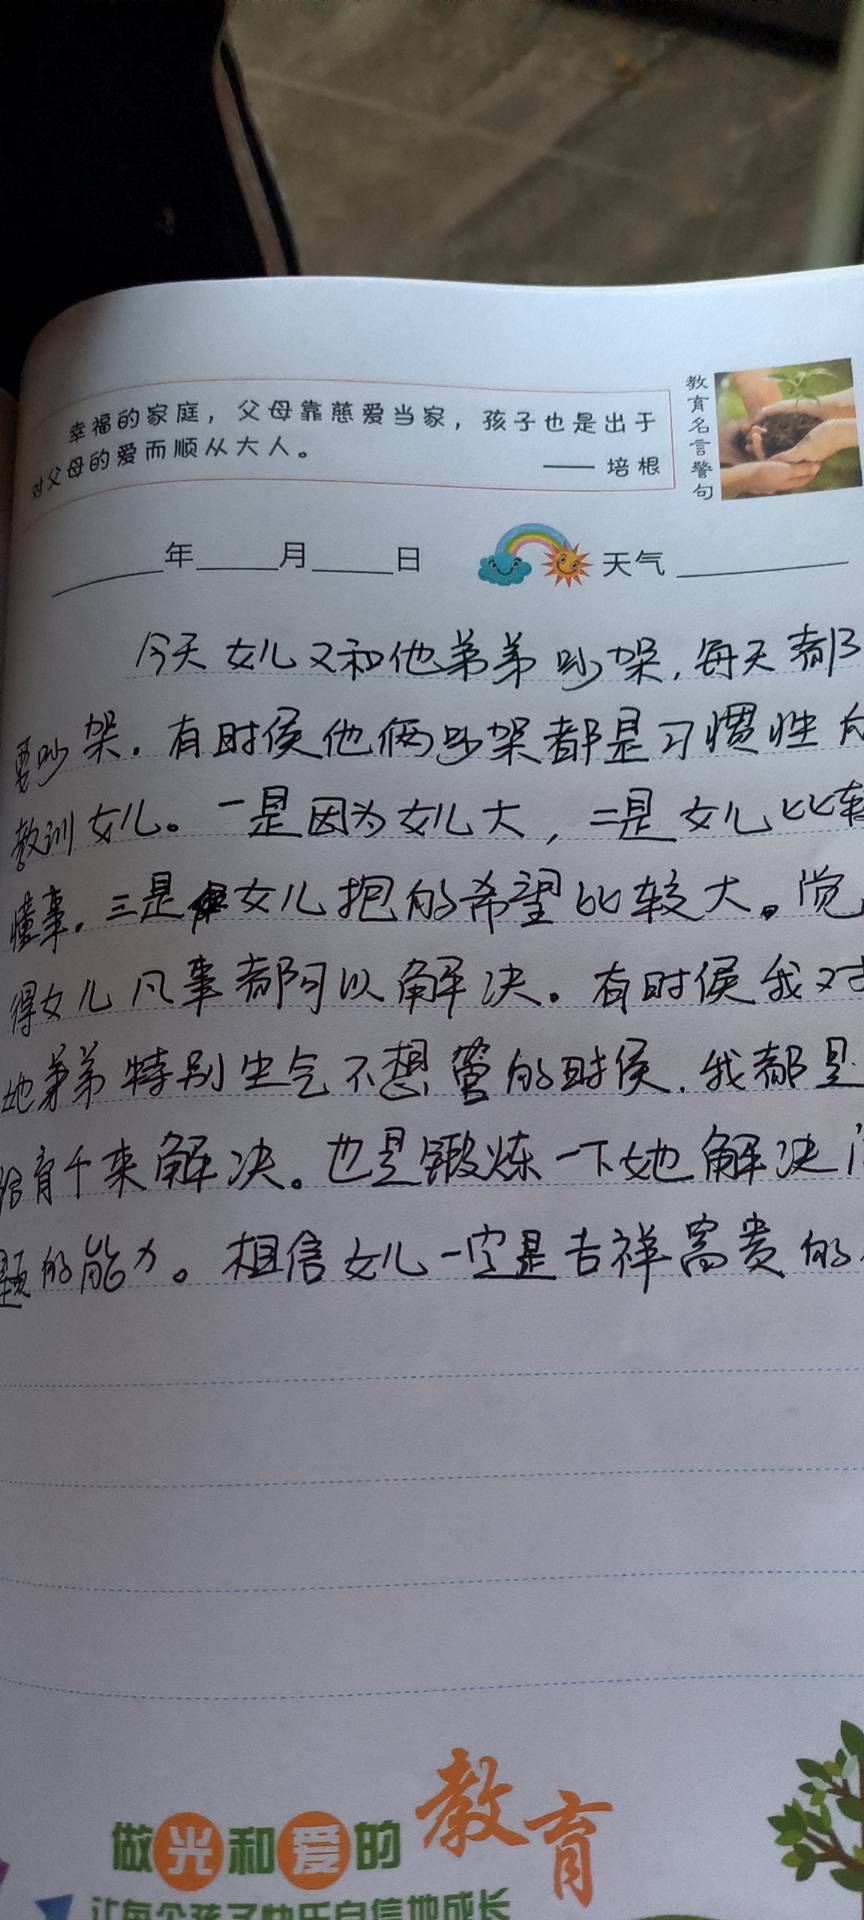 幸福的家庭，父母靠慈爱当家，孩子也是出于
对父母的爱而顺从大人。
—— 培根
教育名言警句
年 月 日 天气
今天女儿又和他弟弟吵架，每天都
要吵架。有时侯他俩吵架都是习惯性的
教训女儿。一是因为女儿大，二是女儿比较
懂事。三是女儿抱的希望比较大。觉
得女儿凡事都可以解决。有时侯我对
她弟弟特别生气不想管的时侯，我都是
给育千来解决。也是锻炼一下她解决问
题的能力。相信女儿一定是吉祥富贵的
做光和爱的教育
让每个孩子快乐自信地成长